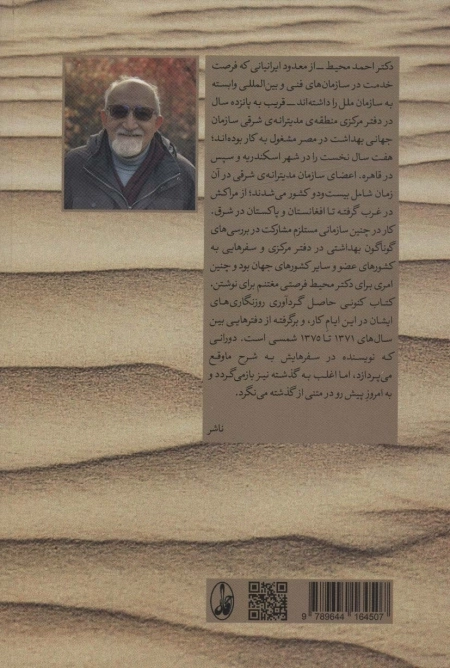 دکتر احمد محیط ــ از معدود ایرانیانی که فرصت
خدمت در سازمان‌های فنی و بین‌المللی وابسته
به سازمان ملل را داشته‌اند ــ قریب به پانزده سال
در دفتر مرکزی منطقه‌ی مدیترانه‌ی شرقی سازمان
جهانی بهداشت در مصر مشغول به کار بوده‌اند؛
هفت سال نخست را در شهر اسکندریه و سپس
در قاهره. اعضای سازمان مدیترانه‌ی شرقی در آن
زمان شامل بیست‌ودو کشور می‌شدند؛ از مراکش
در غرب گرفته تا افغانستان و پاکستان در شرق.
کار در چنین سازمانی مستلزم مشارکت در بررسی‌های
گوناگون بهداشتی در دفتر مرکزی و سفرهایی به
کشورهای عضو و سایر کشورهای جهان بود و چنین
امری برای دکتر محیط فرصتی مغتنم برای نوشتن.
کتاب کنونی حاصل گردآوری روزنگاری‌های
ایشان در این ایام کار، و برگرفته از دفترهایی بین
سال‌های ۱۳۷۱ تا ۱۳۷۵ شمسی است. دورانی
که نویسنده در سفرهایش به شرح ماوقع
می‌پردازد، اما اغلب به گذشته نیز بازمی‌گردد و
به امروزِ پیش رو در متنی از گذشته می‌نگرد.
ناشر
9 789644 164507